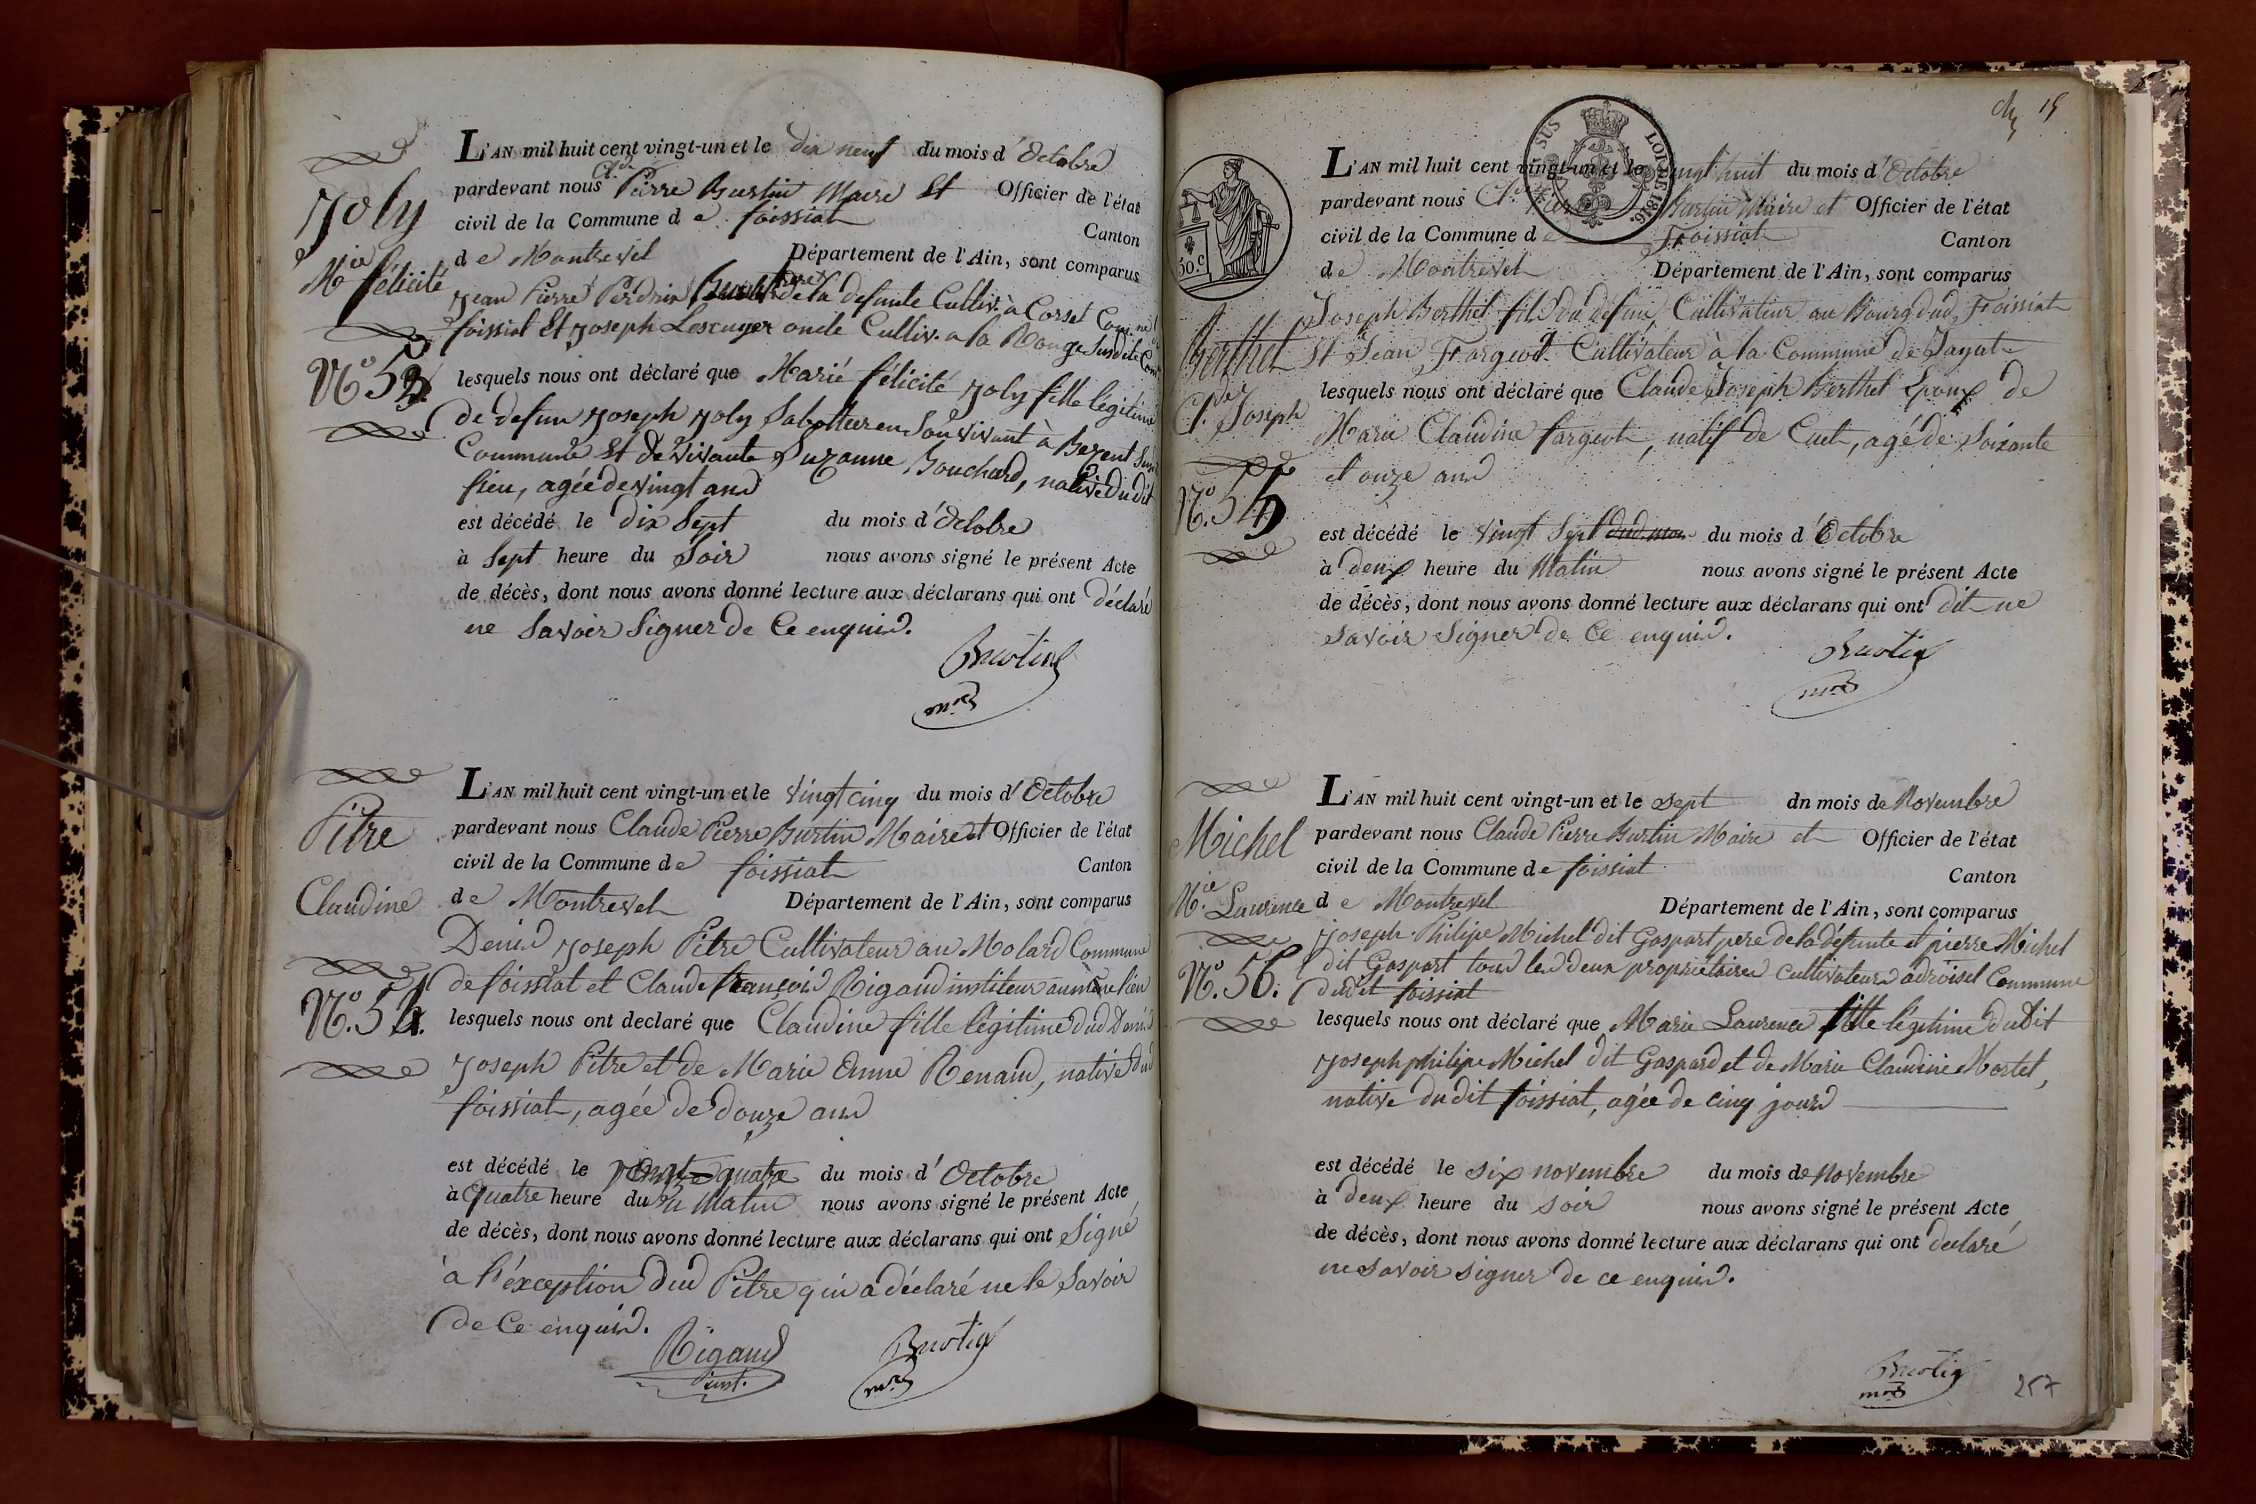 Joly
M.ie félicité
N.o 53
L'AN mil huit cent vingt-un et le dix neuf du mois d'Octobre
pardevant nous Cl.de Pierre Burtin Maire Et Officier de l'état
civil de la Commune de foissiat Canton
de Montrevel Département de l'Ain, sont comparus
Jean Pierre Perdrix de la defunte Cultiv. à Corsel
foissiat Et Joseph Lescuyer oncle Cultiv. a la Rouge Susdite
lesquels nous ont déclaré que Marie félicité Joly fille légitime
de defun Joseph Joly Sabotteur en Son vivant à
Commune Et de vivante Suzanne Bouchard, native du dit
lieu, agée de vingt ans
est décédé le dix Sept du mois d'Octobre
à Sept heure du Soir nous avons signé le présent Acte
de décès, dont nous avons donné lecture aux déclarans qui ont déclaré
ne Savoir Signer de Ce enquis.
Burtin
m.re
Pitre
Claudine
N.o 54.
L'AN mil huit cent vingt-un et le vingt cinq du mois d'Octobre
pardevant nous Claude Pierre Burtin Maire et Officier de l'état
civil de la Commune de foissiat Canton
de Montrevel Département de l'Ain, sont comparus
Denis Joseph Pitre Cultivateur au Molard Commune
de foissiat et Claude françois Rigaud instituteur au même lieu
lesquels nous ont declaré que Claudine fille légitime dud Denis
Joseph Pitre et de Marie Anne Renaud, native dud
foissiat, agée de douze ans
est décédé le vingt quatre du mois d'Octobre
à quatre heure du Matin nous avons signé le présent Acte
de décès, dont nous avons donné lecture aux déclarans qui ont Signé
à l'éxception dud Pitre qui a déclaré ne le Savoir
de Ce enquis.
Rigaud
inst.
Burtin
m.re
15
SUS
LOI DE 1816.
50.c
Berthet
Cl.de Joseph
N.o 55
L'AN mil huit cent vingt-un et le vingt huit du mois d'Octobre
pardevant nous Cl.de Burtin Maire et Officier de l'état
civil de la Commune de Foissiat Canton
de Montrevel Département de l'Ain, sont comparus
Joseph Berthet fils du défun, Cultivateur au Bourg dud. Foissiat
Et Jean Fargeot Cultivateur à la Commune de Jayat
lesquels nous ont déclaré que Claude Joseph Berthet Epoux de
Marie Claudine fargeot, natif de Cuet, agé de Soixante
et onze ans
est décédé le vingt Sept dud. mois du mois d'Octobre
à deux heure du Matin nous avons signé le présent Acte
de décès, dont nous avons donné lecture aux déclarans qui ont dit ne
Savoir Signer de Ce enquis.
Burtin
m.re
Michel
M.ie Laurence
N.o 56.
L'AN mil huit cent vingt-un et le sept dn mois de Novembre
pardevant nous Claude Pierre Burtin Maire et Officier de l'état
civil de la Commune de foissiat Canton
de Montrevel Département de l'Ain, sont comparus
Joseph Philipe Michel dit Gaspart pere de la défunte et pierre Michel
dit Gaspart tous les deux propriétaires cultivateurs Commune
dudit foissiat
lesquels nous ont déclaré que Marie Laurence fille légitime dudit
Joseph philipe Michel dit Gaspard et de Marie Claudine Mortel,
native du dit foissiat, agée de cinq jours
est décédé le six novembre du mois de Novembre
à deux heure du soir nous avons signé le présent Acte
de décès, dont nous avons donné lecture aux déclarans qui ont declaré
ne savoir signer de ce enquis.
Burtin
m.re
257